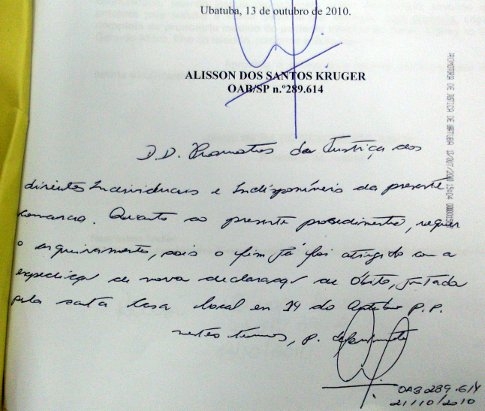 Ubatuba, 13 de outubro de 2010.
ALISSON DOS SANTOS KRUGER
OAB/SP n.º289.614
D.D. Promotor da Justiça dos
direitos Individuais e Indisponíveis da presente
comarca. Quanto ao presente procedimento, requer
o arquivamento, pois o fim já foi atingido com a
expedição de nova declaração de Óbito, juntada
pela santa Casa local em 14 do P.P.
netes termos, p. deferimento
OAB 289.614
21/10/2010